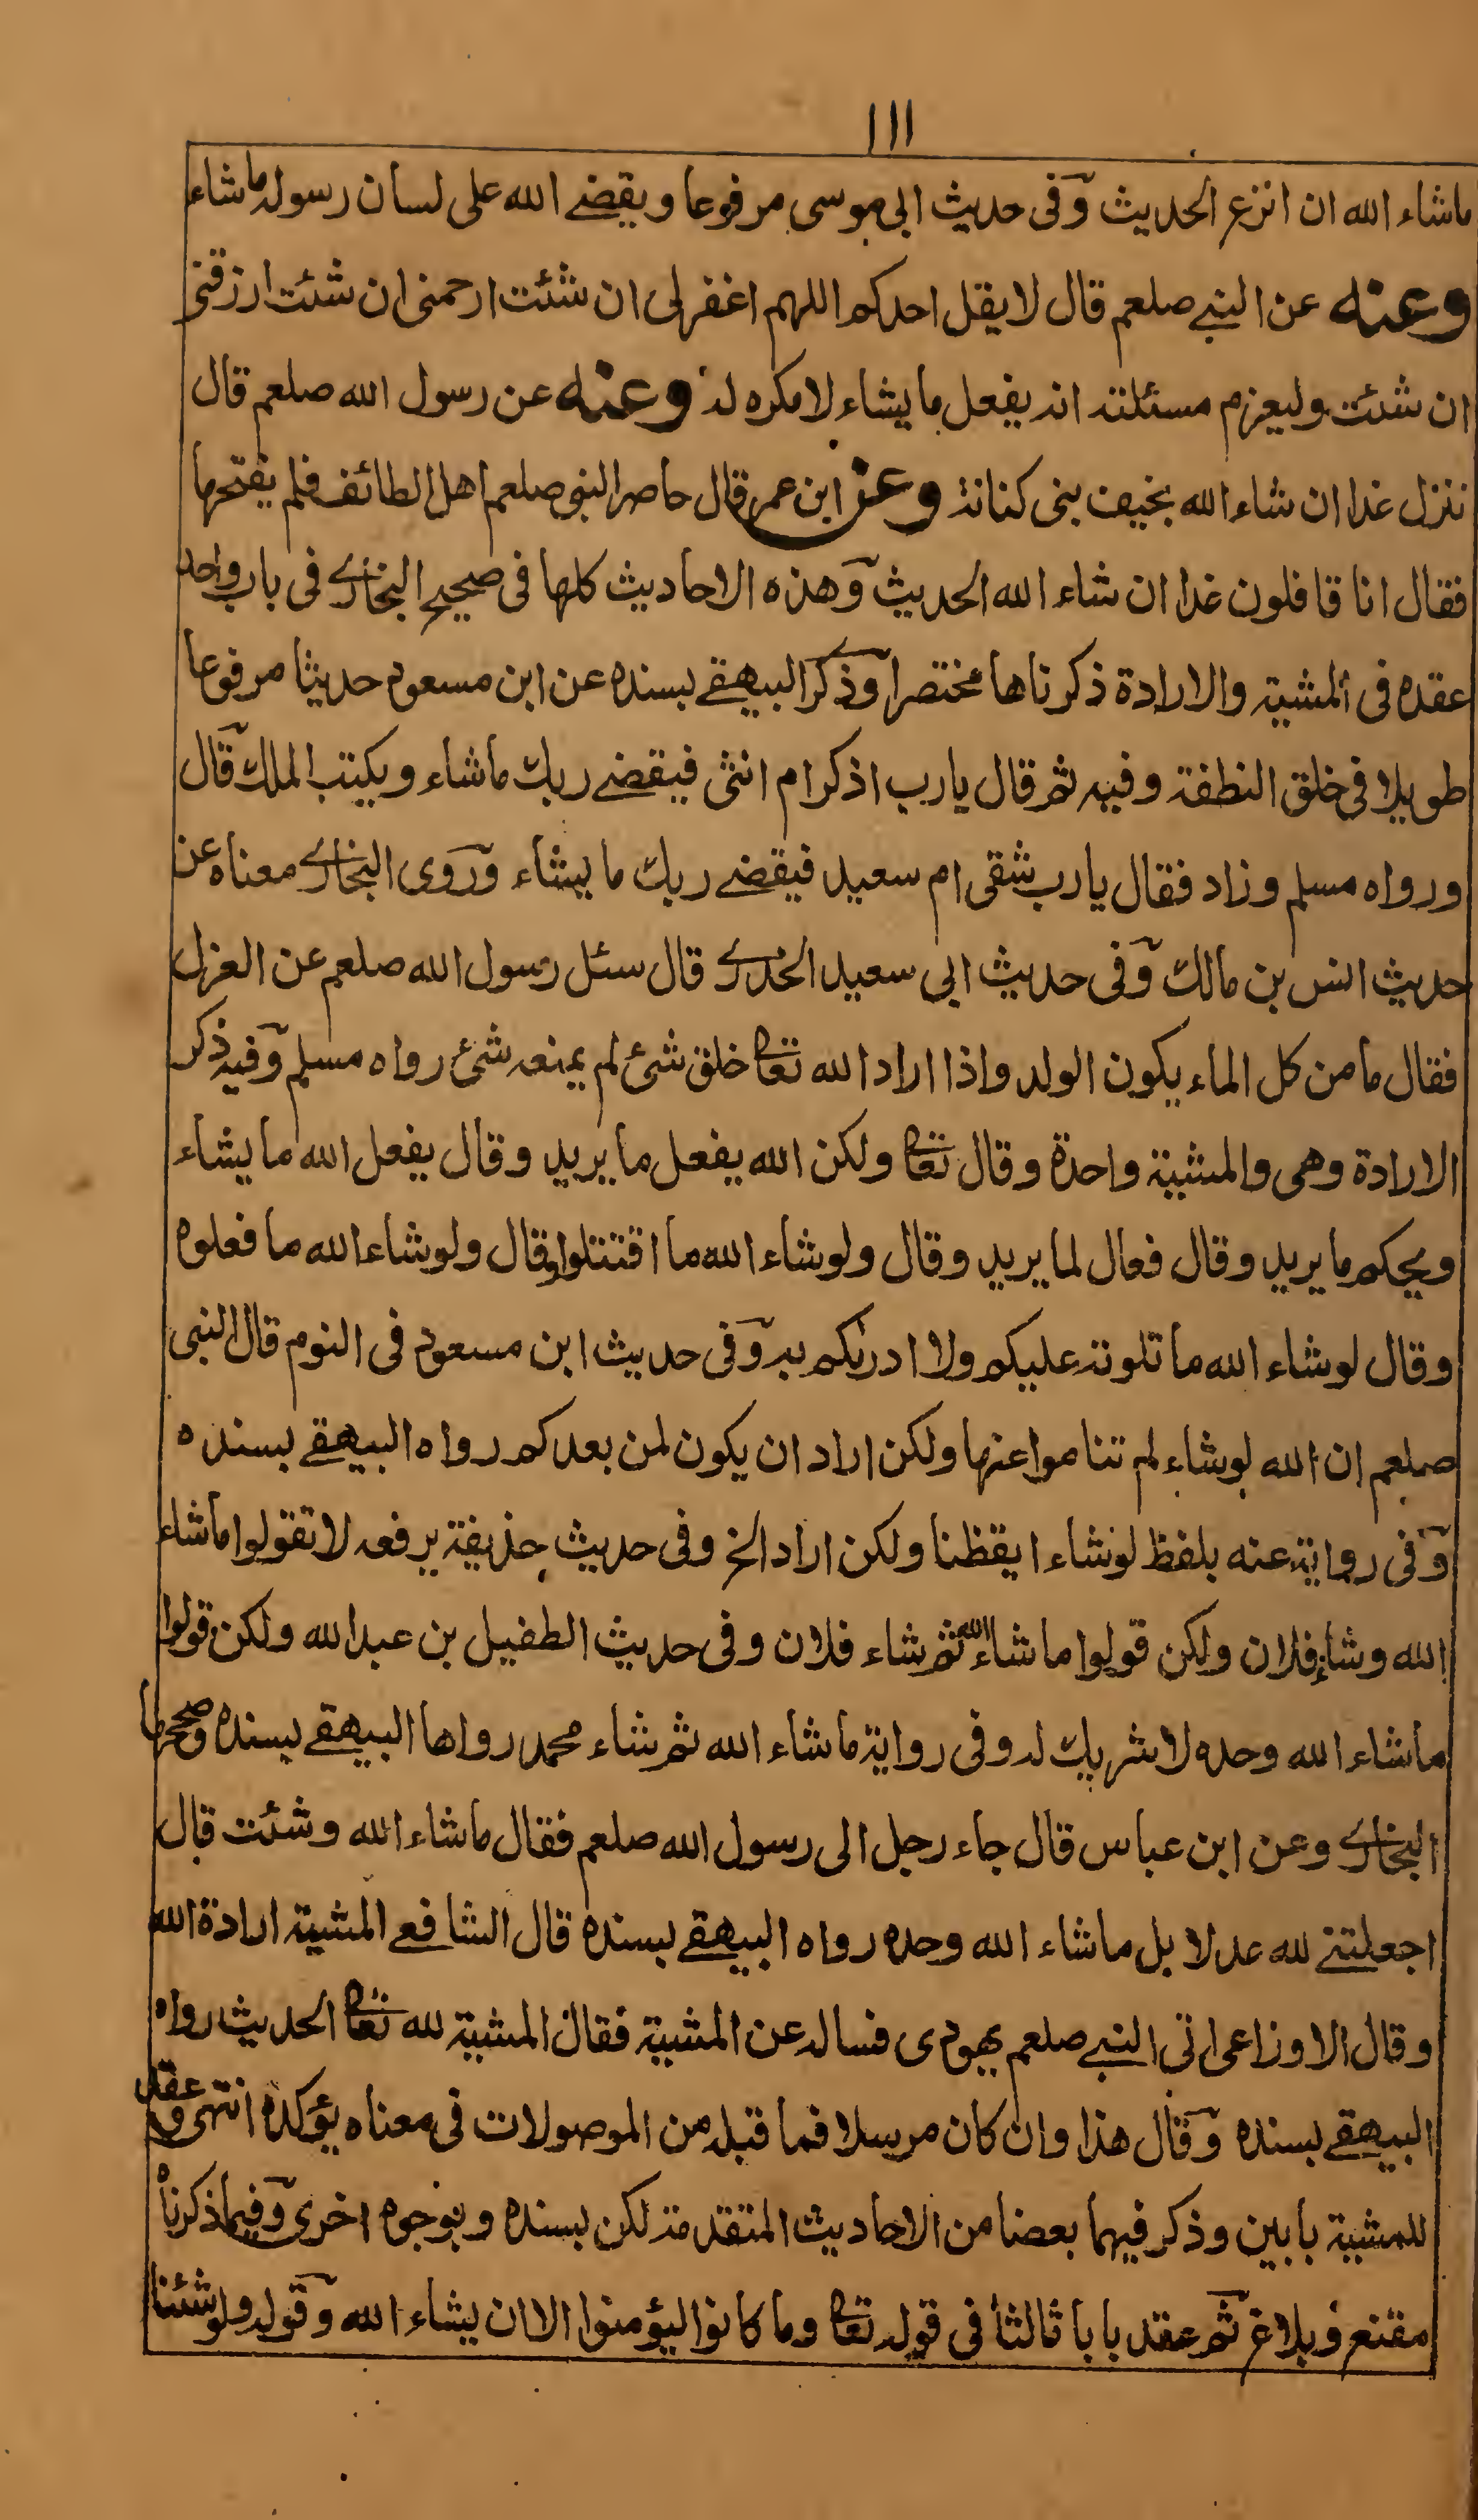 ١١١
ماشاء الله ان انزع الحديث وفى حديث ابى موسى مرفوعا ويقضے الله على لسان رسوله ماشاء
وعنه عن النبے صلعم قال لا يقل احدكم اللهم اغفرلى ان شئت ارحمنى ان شئت ارزقنے
ان شئت وليعزم مسئلته انه يفعل مايشاء لا مكره له وعنه عن رسول الله صلعم قال
ننزل غدا ان شاء الله بخيف بنى كنانة وعن ابن عمر قال حاصر النبى صلعم اهل الطائف فلم يفتحها
فقال انا قافلون غدا ان شاء الله الحديث وهذه الاحاديث كلها فى صحيح البخارے فى باب واحد
عقده فى المشية والارادة ذكرناها مختصرا وذكر البيهقے بسنده عن ابن مسعود حديثا مرفوعا
طويلا فى خلق النطفة وفيه ثم قال يارب اذكرام انثى فيقضے ربك ماشاء ويكتب الملك قال
ورواه مسلم وزاد فقال يارب شقى ام سعيد فيقضے ربك ما يشاء وروى البخارے معناه عن
حديث انس بن مالك وفى حديث ابى سعيد الخدرے قال سئل رسول الله صلعم عن العزل
فقال مامن كل الماء يكون الولد واذا اراد الله تعا خلق شئ لم يمنعه شئ رواه مسلم وفيه ذكر
الارادة وهى والمشية واحدة وقال تعا ولكن الله يفعل مايريد وقال يفعل الله مايشاء
ويحكم مايريد وقال فعال لما يريد وقال ولوشاء الله ما اقتتلوا وقال ولوشاء الله ما فعلوه
وقال لوشاء الله ماتلوته عليكم ولا ادرىكم به وفى حديث ابن مسعود فى النوم قال النبى
صلعم ان الله لوشاء لم تناموا عنها ولكن اراد ان يكون لمن بعدكم رواه البيهقے بسنده
وفى رواية عنه بلفظ لوشاء ايقظنا ولكن اراد الخ وفى حديث حذيفة يرفعه لا تقولوا ماشاء
الله وشاء فلان ولكن قولوا ماشاء الله ثم شاء فلان وفى حديث الطفيل بن عبدالله ولكن قولوا
ماشاء الله وحده لاشريك له وفى رواية ماشاء الله ثم شاء محمد رواها البيهقے بسنده وصححها
البخارے وعن ابن عباس قال جاء رجل الى رسول الله صلعم فقال ماشاء الله وشئت قال
اجعلتنے لله عدلا بل ماشاء الله وحده رواه البيهقے بسنده قال الشافعے المشية ارادة الله
وقال الاوزاعى اتى النبے صلعم يهودى فساله عن المشية فقال المشية لله تعا الحديث رواه
البيهقے بسنده وقال هذا وان كان مرسلا فما قبله من الموصولات فى معناه يؤكده انتهى وعقد
للمشية بابين وذكر فيهما بعضا من الاحاديث المتقدمة لكن بسنده وبوجوه اخرى وفيما ذكرناه
مقنع وبلاغ ثم عقد بابا ثالثا فى قوله تعا وما كانوا ليؤمنوا الا ان يشاء الله وقوله ولوشئنا